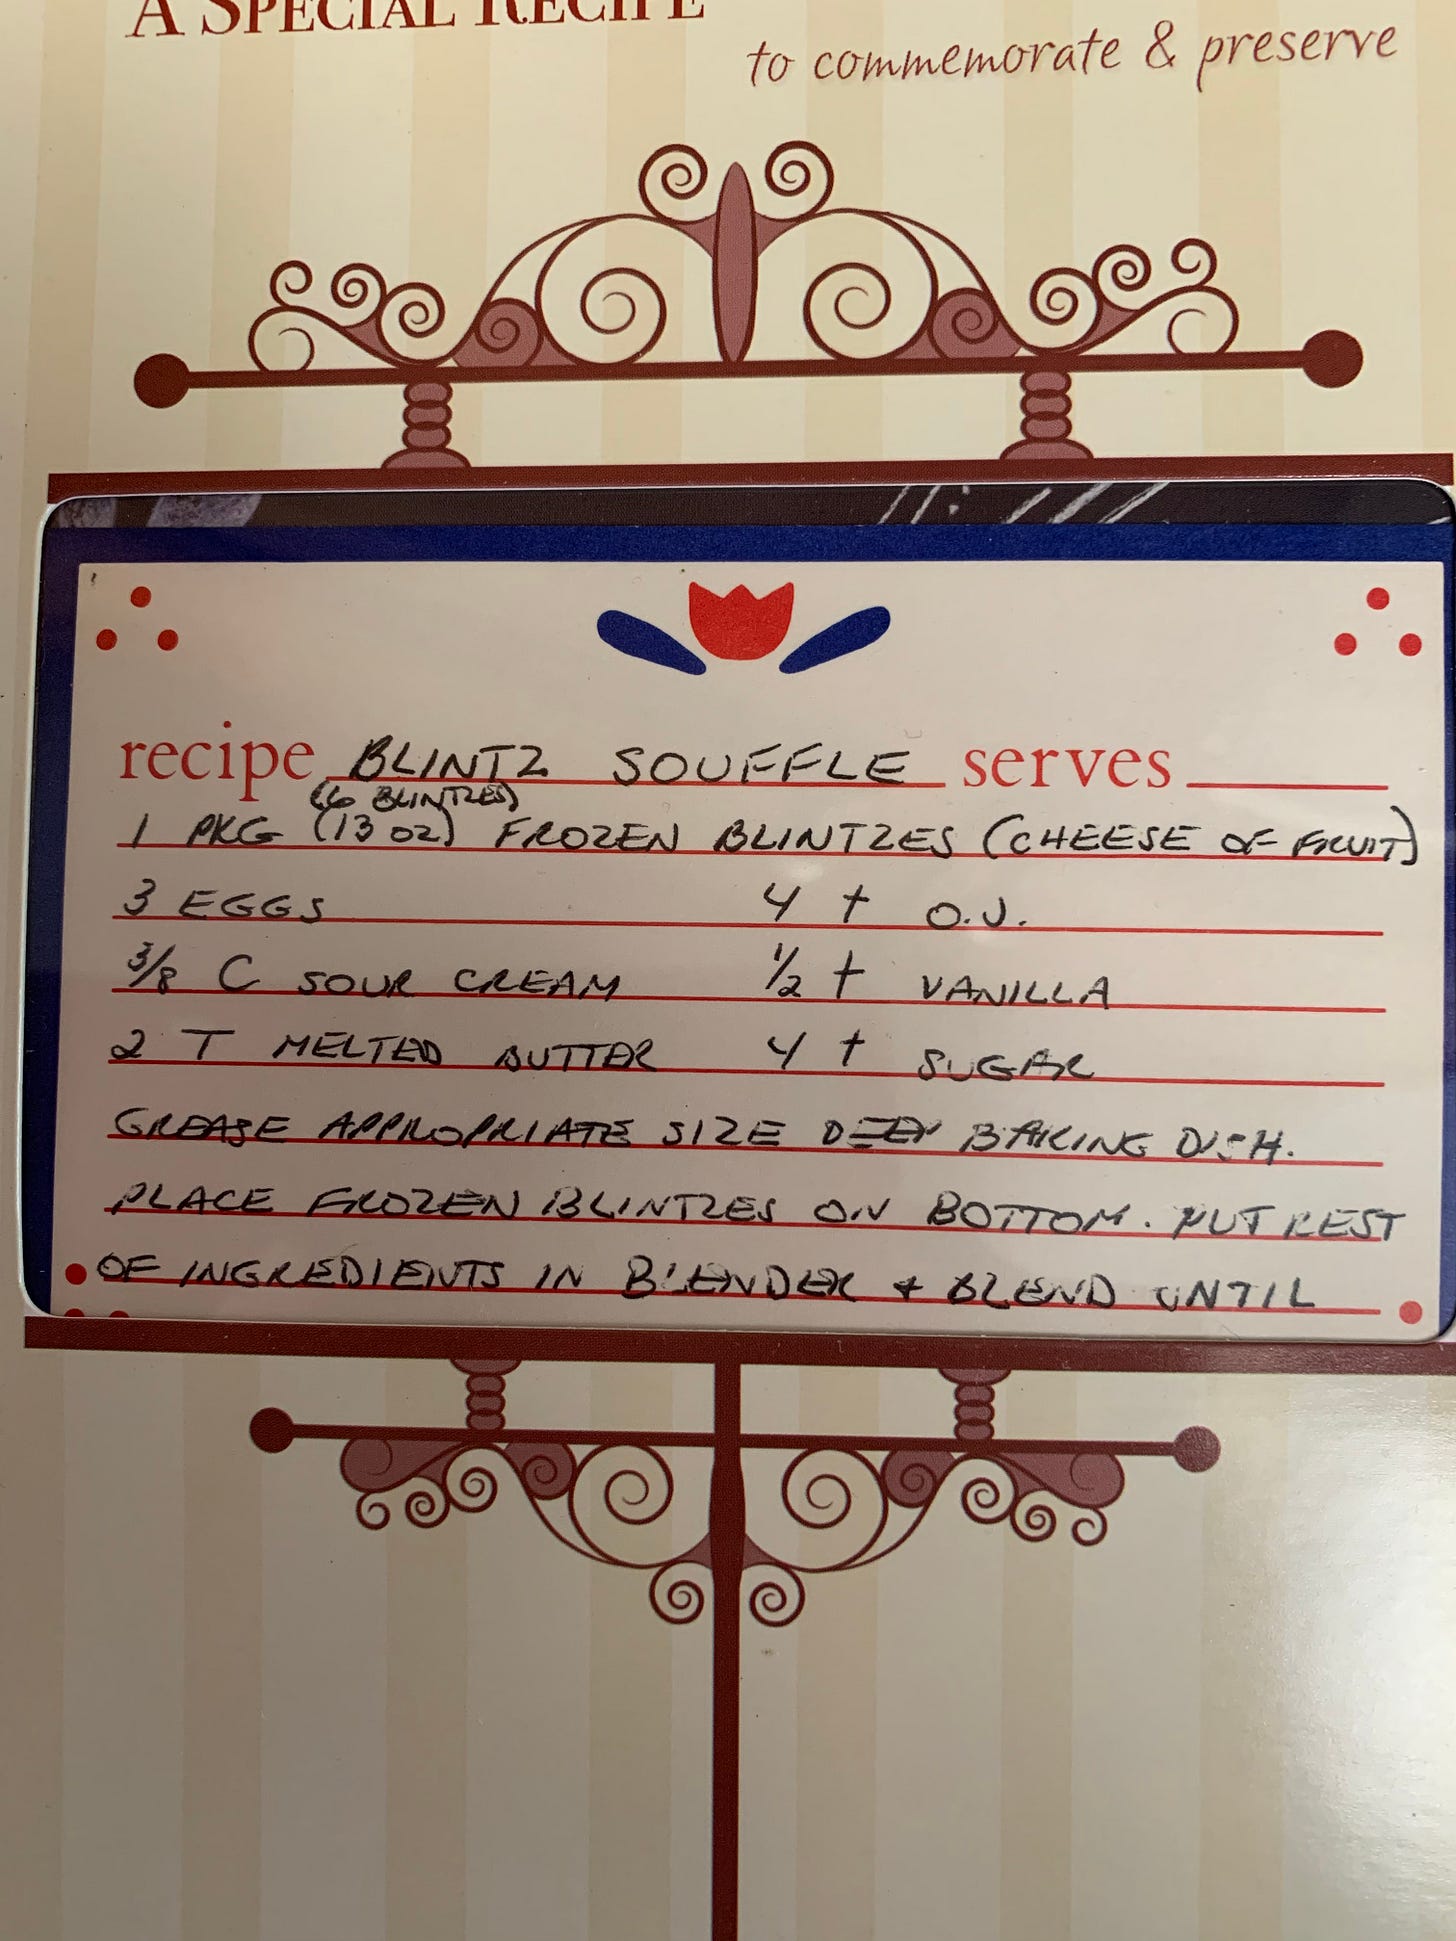 A SPECIAL RECIPE
to commemorate & preserve
recipe BLINTZ SOUFFLE serves
(6 BLINTZES)
1 PKG (13 OZ) FROZEN BLINTZES (CHEESE OF FRUIT)
3 EGGS 4 t O.J.
3/8 C SOUR CREAM 1/2 t VANILLA
2 T MELTED BUTTER 4 t SUGAR
GREASE APPROPRIATE SIZE DEEP BAKING DISH.
PLACE FROZEN BLINTZES ON BOTTOM. PUT REST
OF INGREDIENTS IN BLENDER + BLEND UNTIL